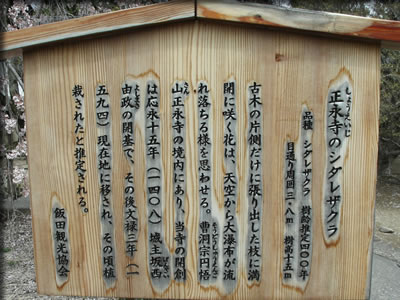 正永寺のシダレザクラ
しょうえいじ
品種 シダレザクラ 樹齢推定四〇〇年
目通り周囲三・八m 樹高十五m
古木の片側だけに張り出した枝に満
開に咲く花は、天空から大瀑布が流
れ落ちる様を思わせる。曹洞宗円悟
山正永寺の境内にあり、当寺の開創
は応永十五年(一四〇八)城主坂西
由政の開基で、その後文禄三年(一
五九四)現在地に移され、その頃植
栽されたと推定される。
飯田観光協会